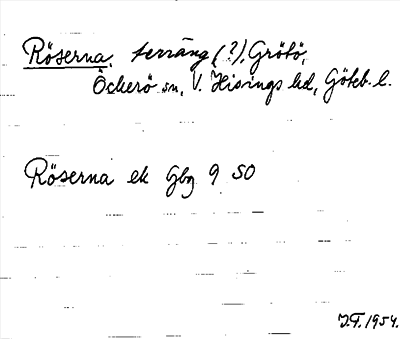 Röserna, terräng (?), Grötö,
Öckerö sn, V. Hisings hd, Göteb. l.
Röserna ek Gbg 9 SO
J.F. 1954.